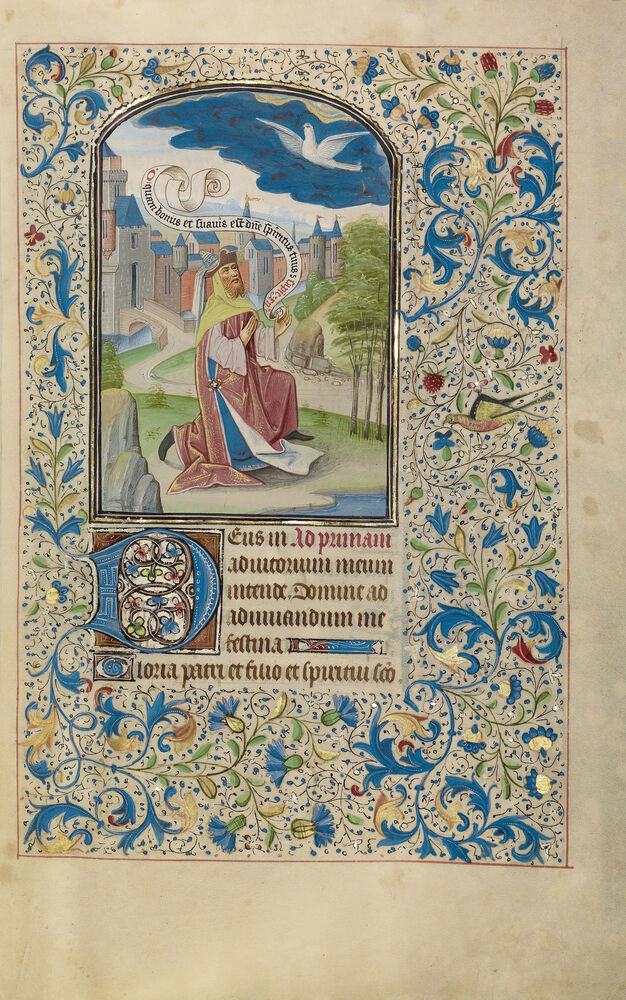 O quam bonus et suauis est dne spiritus tuus
Deus in Ad primam
adiutorium meum
intende. Domine ad
adiuuandum me
festina
Gloria patri et filio et spiritui sco